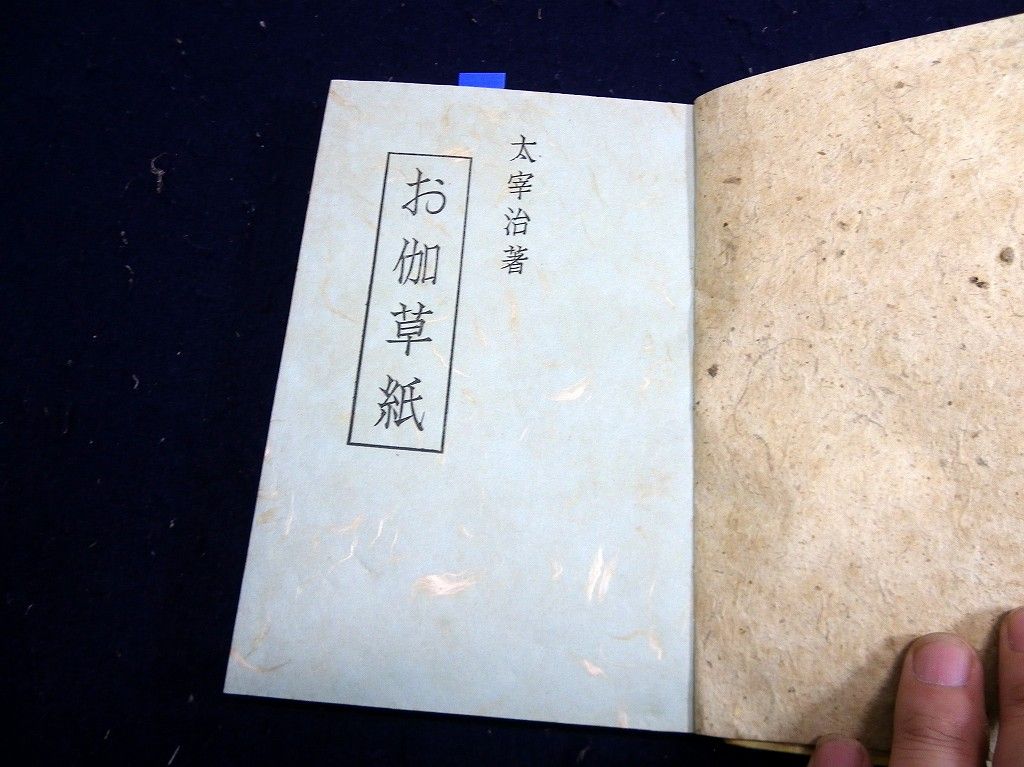 太宰治著
お伽草紙